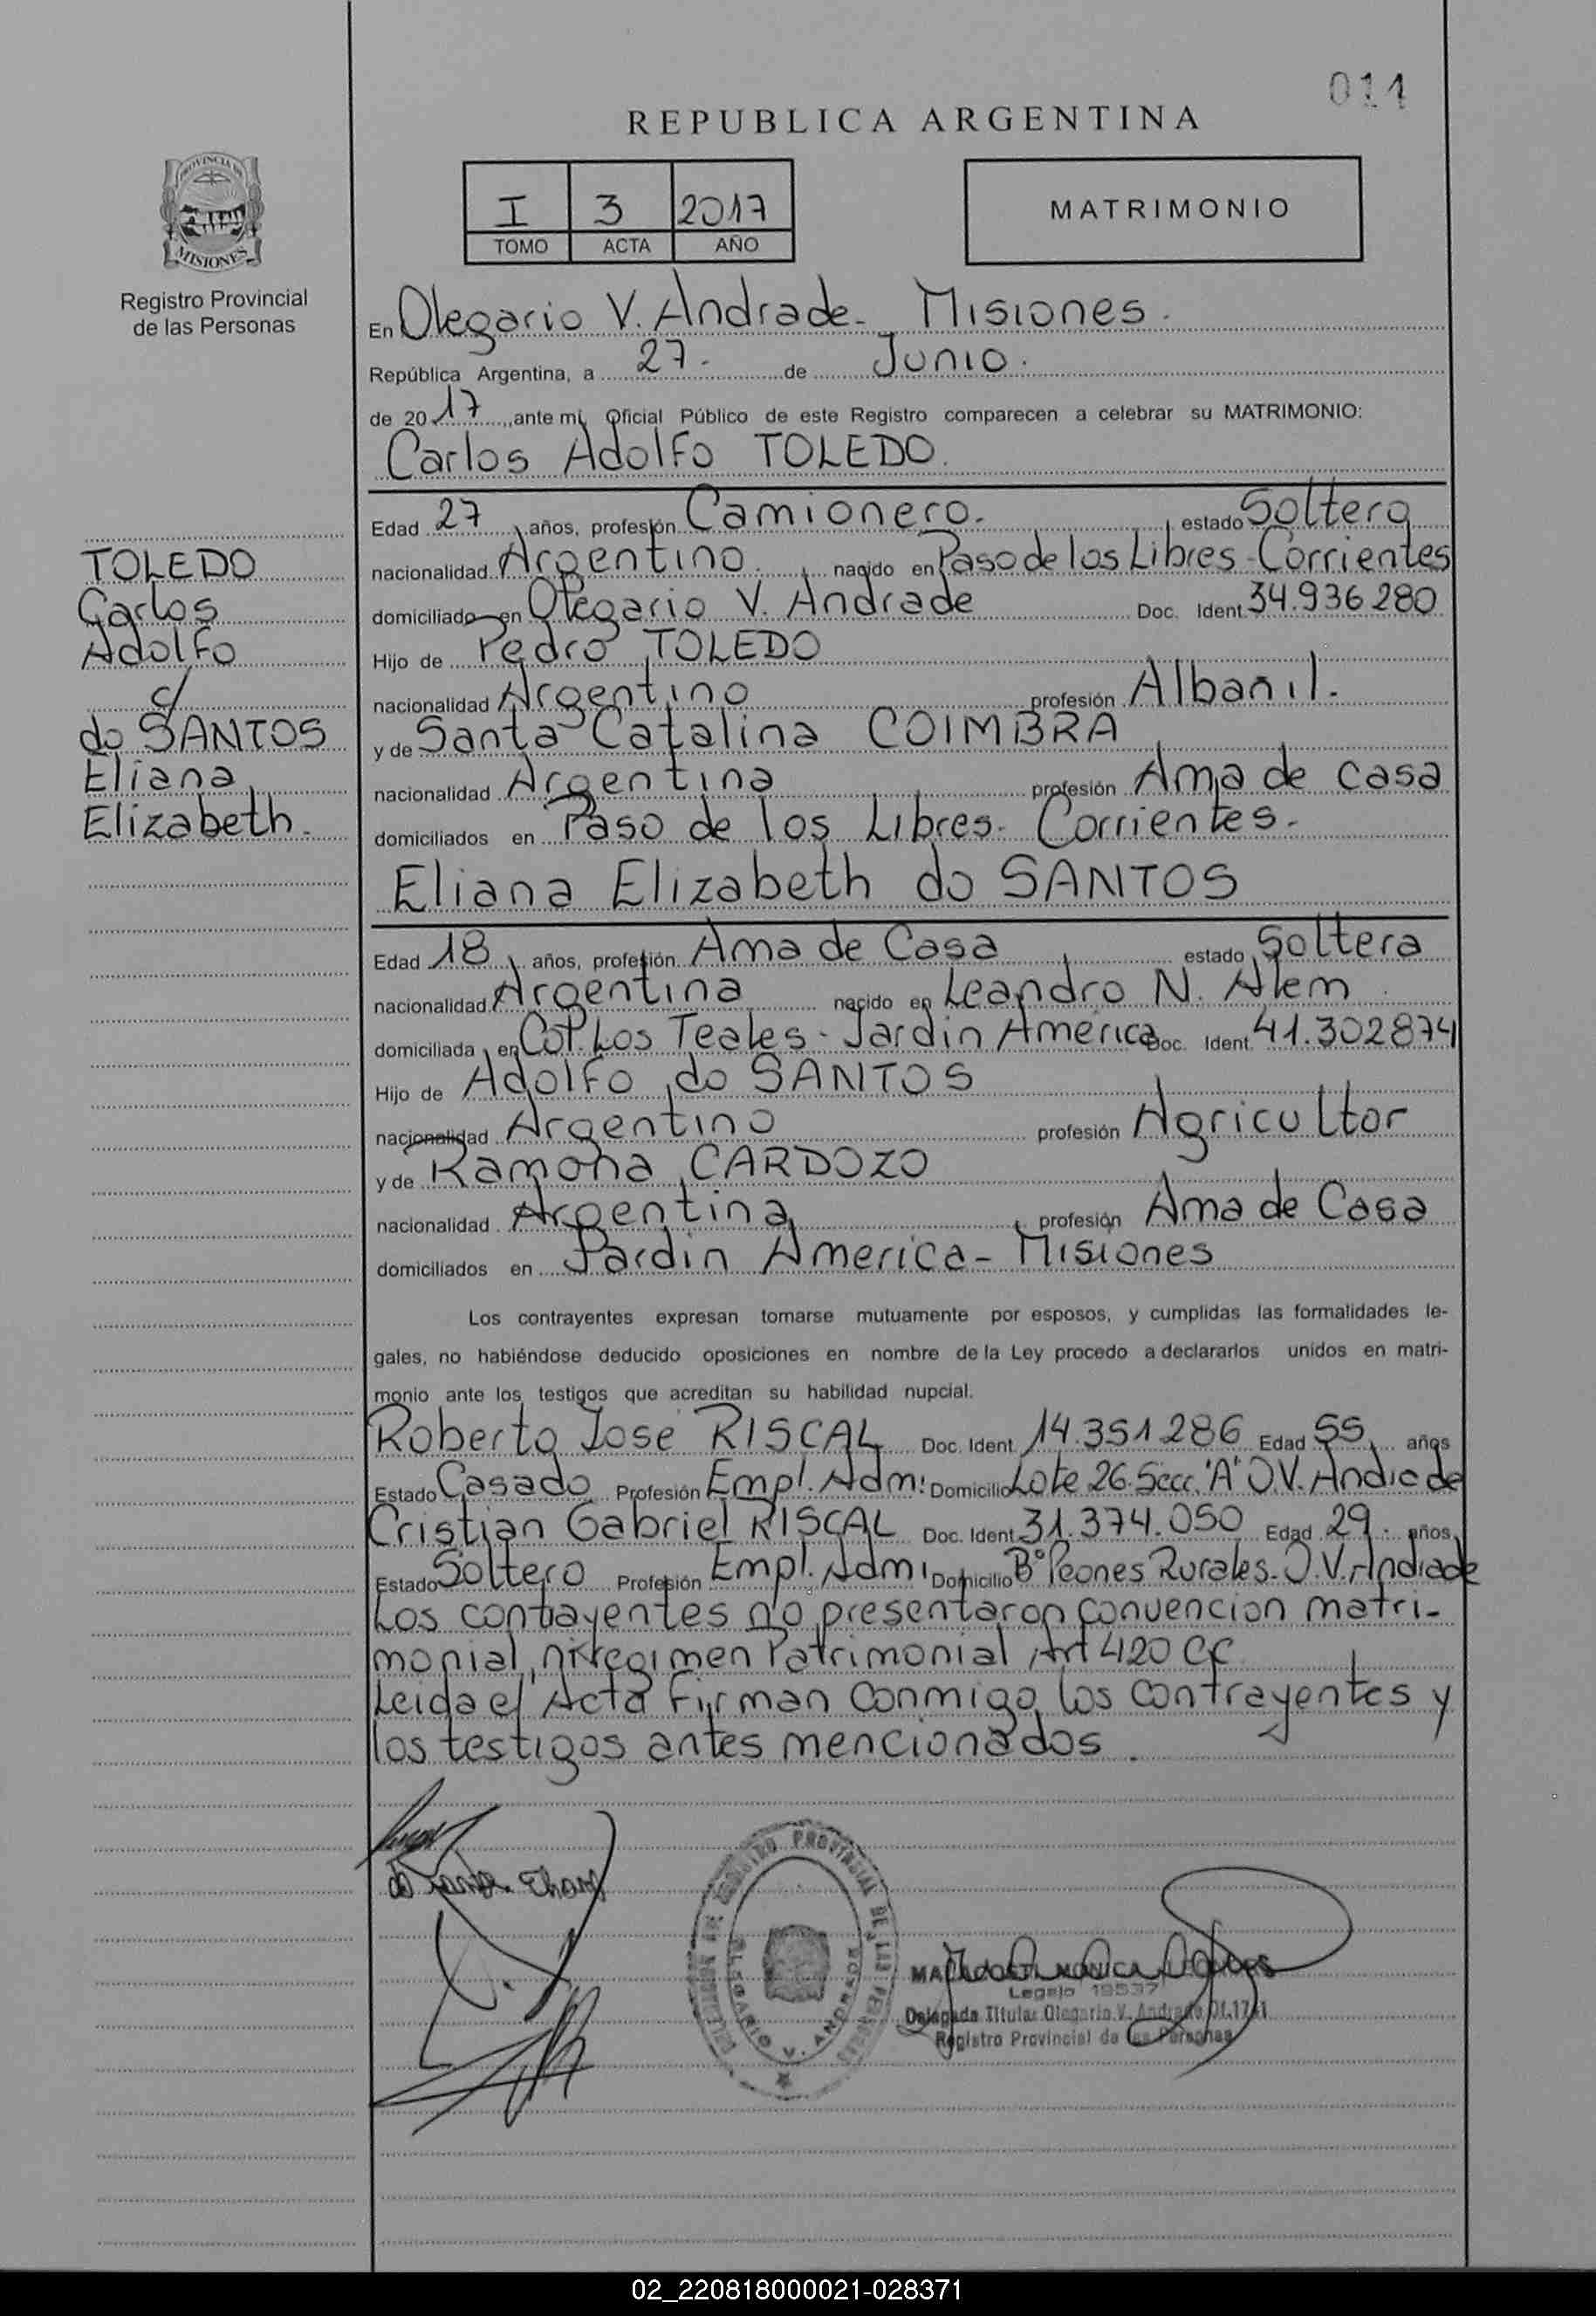 014
REPUBLICA ARGENTINA
PROVINCIA DE
MISIONES
Registro Provincial
de las Personas
I 3 2017
TOMO ACTA AÑO
MATRIMONIO
En Olegario V. Andrade - Misiones.
República Argentina, a 27. de Junio.
de 2017, ante mí, Oficial Público de este Registro comparecen a celebrar su MATRIMONIO:
Carlos Adolfo TOLEDO.
TOLEDO
Carlos
Adolfo
c/
do SANTOS
Eliana
Elizabeth.
Edad 27 años, profesión Camionero. estado Soltero
nacionalidad Argentino. nacido en Paso de los Libres - Corrientes
domiciliado en Olegario V. Andrade Doc. Ident. 34.936280
Hijo de Pedro TOLEDO
nacionalidad Argentino profesión Albañil.
y de Santa Catalina COIMBRA
nacionalidad Argentina profesión Ama de casa
domiciliados en Paso de los Libres - Corrientes.
Eliana Elizabeth do SANTOS
Edad 18 años, profesión Ama de Casa estado Soltera
nacionalidad Argentina nacido en Leandro N. Alem
domiciliada en Col. Los Teales - Jardin America Doc. Ident. 41.302874
Hijo de Adolfo do SANTOS
nacionalidad Argentino profesión Agricultor
y de Ramona CARDOZO
nacionalidad Argentina profesión Ama de Casa
domiciliados en Jardin America - Misiones
Los contrayentes expresan tomarse mutuamente por esposos, y cumplidas las formalidades le-
gales, no habiéndose deducido oposiciones en nombre de la Ley procedo a declararlos unidos en matri-
monio ante los testigos que acreditan su habilidad nupcial.
Roberto Jose RISCAL Doc. Ident. 14.351286 Edad 55 años
Estado Casado Profesión Empl. Adm. Domicilio Lote 26 Secc. "A" O.V. Andrade
Cristian Gabriel RISCAL Doc. Ident. 31.374.050 Edad 29. años
Estado Soltero Profesión Empl. Adm. Domicilio Bº Peones Rurales - O.V. Andrade
Los contrayentes no presentaron convencion matri-
monial, ni regimen Patrimonial Art 420 CC
Leida el Acta Firman conmigo los contrayentes y
los testigos antes mencionados.
REGISTRO PROVINCIAL DE LAS PERSONAS
OLEGARIO V. ANDRADE
MONICA
Legajo 19537
Delegada Titular Olegario V. Andrade Of. 1741
Registro Provincial de las Personas
02_220818000021-028371